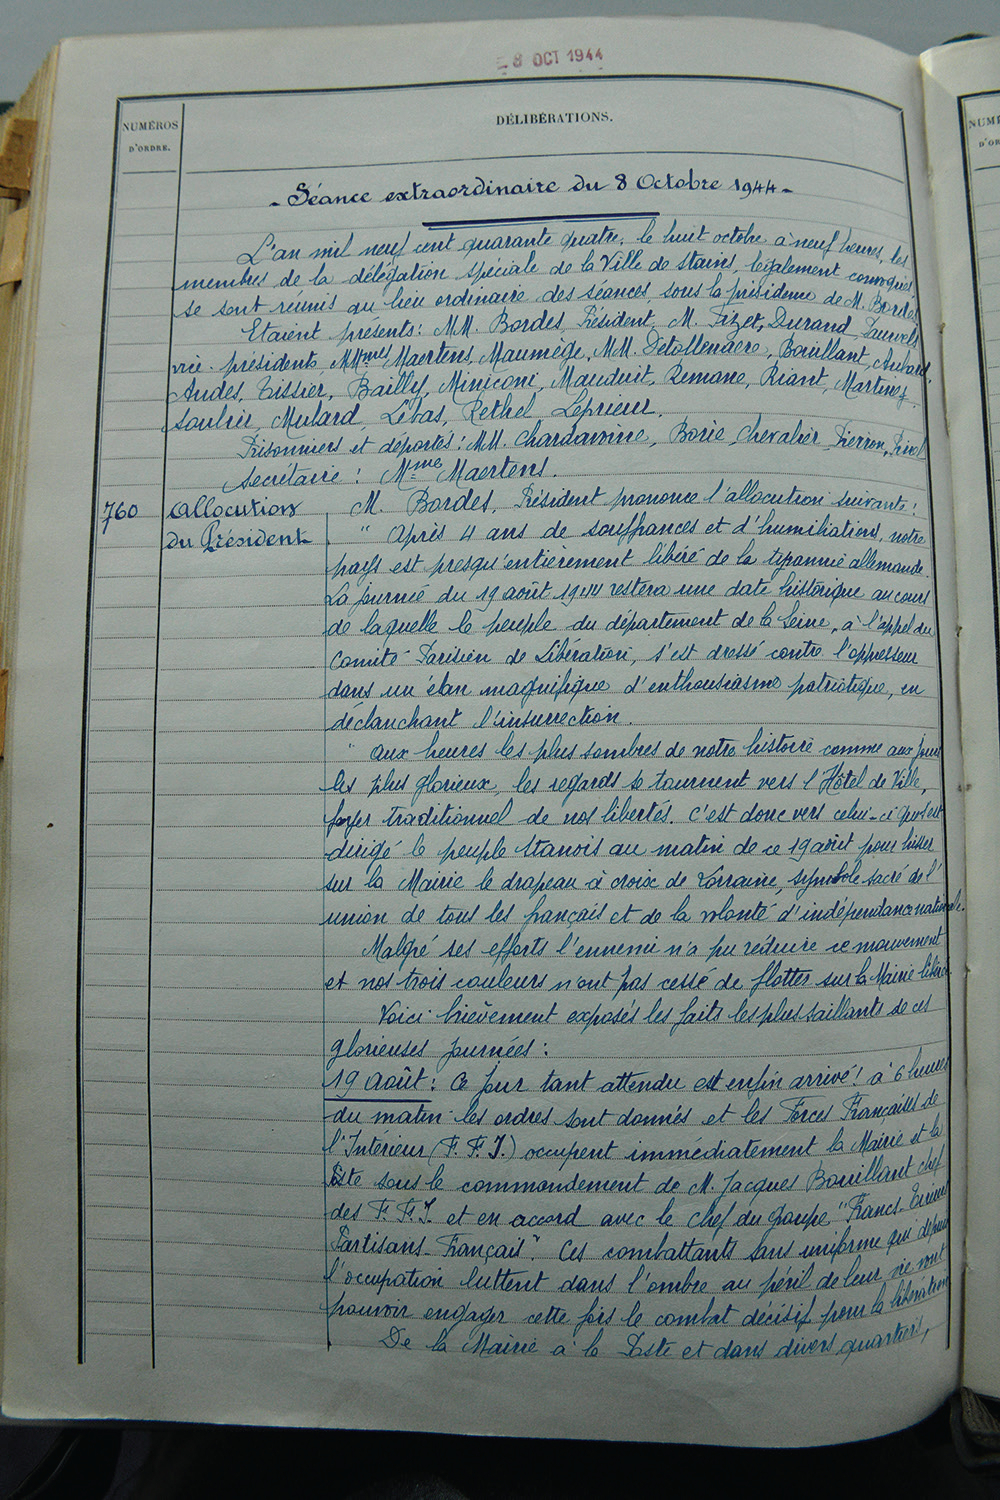 - 8 OCT 1944
NUMÉROS
D'ORDRE.
DÉLIBÉRATIONS.
- Séance extraordinaire du 8 Octobre 1944 -
L'an mil neuf cent quarante quatre, le huit octobre à neuf heures, les
membres de la délégation spéciale de la Ville de Stains, légalement convoqués,
se sont réunis au lieu ordinaire des séances, sous la présidence de M. Bordes
Etaient présents: MM. Bordes, Président, M. Fizet, Durand, Lauwels
vice-présidents MMmes Maertens, Maumège, MM. Detollenaere, Bouillant, Aubard,
Andes, Tissier, Bailly, Miniconi, Mauduit, Remane, Riant, Martinez
Soulier, Mulard, Lebas, Rethel Leprieur.
Prisonniers et déportés: MM. Chardavoine, Borie, Chevalier, Pierron,
Secrétaire : Mme Maertens.
760 Allocution
du Président
M. Bordes, Président prononce l'allocution suivante:
" Après 4 ans de souffrances et d'humiliations, notre
pays est presqu'entièrement libéré de la tyrannie allemande.
La journée du 19 août 1944 restera une date historique au cours
de laquelle le peuple du département de la Seine, à l'appel du
Comité Parisien de Libération, s'est dressé contre l'oppresseur
dans un élan magnifique d'enthousiasme patriotique, en
déclanchant l'insurrection.
" Aux heures les plus sombres de notre histoire comme aux jours
les plus glorieux, les regards se tournent vers l'Hôtel de Ville,
foyer traditionnel de nos libertés. C'est donc vers celui-ci que s'est
dirigé le peuple Stanois au matin de ce 19 août pour hisser
sur la Mairie le drapeau à croix de Lorraine, symbole sacré de l'
union de tous les français et de la volonté d'indépendance nationale.
Malgré ses efforts l'ennemi n'a pu réduire ce mouvement
et nos trois couleurs n'ont pas cessé de flotter sur la Mairie libérée.
Voici brièvement exposés les faits les plus saillants de ces
glorieuses journées :
19 Août : Ce jour tant attendu est enfin arrivé! à 6 heures
du matin les ordres sont donnés et les Forces Françaises de
l'Intérieur (F.F.I.) occupent immédiatement la Mairie et la
Poste sous le commandement de M. Jacques Bouillant chef
des F.F.I. et en accord avec le chef du groupe "Francs-Tireurs
Partisans-Français". Ces combattants sans uniforme qui depuis
l'occupation luttent dans l'ombre au péril de leur vie vont
pouvoir engager cette fois le combat décisif pour la libération
De la Mairie à la Poste et dans divers quartiers,
NUMÉ
D'OR